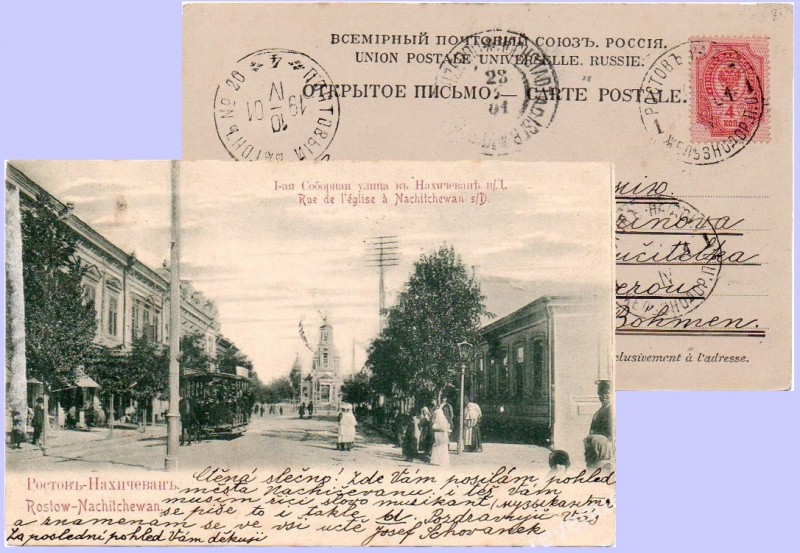 ВСЕМІРНЫЙ ПОЧТОВЫЙ СОЮЗЪ. РОССІЯ.
UNION POSTALE UNIVERSELLE. RUSSIE.
ОТКРЫТОЕ ПИСЬМО.— CARTE POSTALE.
ПОЧТОВЫЙ ВАГОНЪ № 20
19 IV 01
10
23
01
РОСТОВЪ
1 ЖЕЛѢЗНОДОР. П. 1
4
КОП
Bohmen.
exclusivement à l'adresse.
1-ая Соборная улица въ Нахичеванѣ н/Д.
Rue de l'église à Nachitchewan s/D.
Ростовъ-Нахичевань.
Rostow-Nachitchewan.
Ctěná slečno! Zde Vám posílám pohled
města Nachičevanu; i též Vám
musím říci slovo muzikant (музыкантъ
se píše to i takto ы. Pozdravuji Vás
a znamenám se ve vší úctě Josef Schovanek
Za poslední pohled Vám děkuji